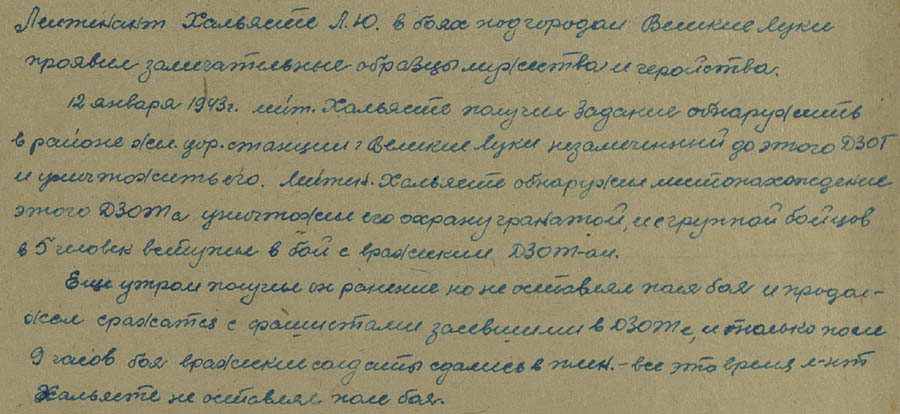 Лейтенант Хальясте Л.Ю. в боях под городом Великие Луки
проявил замечательные образцы мужества и геройства.
12 января 1943г. лейт. Хальясте получил задание обнаружить
в районе жел. дор. станции г Великие Луки незамеченный до этого ДЗОТ
и уничтожить его. Лейтен. Хальясте обнаружил местонахождение
этого ДЗОТа уничтожил его охрану гранатой, и с группой бойцов
в 5 человек вступил в бой с вражеским ДЗОТ-ом.
Еще утром получил он ранение но не оставлял поля боя и продол-
жал сражатся с фашистами засевшими в ДЗОТе, и только после
9 часов боя вражеские солдаты сдались в плен. - все это время л-нт
Хальясте не оставлял поле боя.